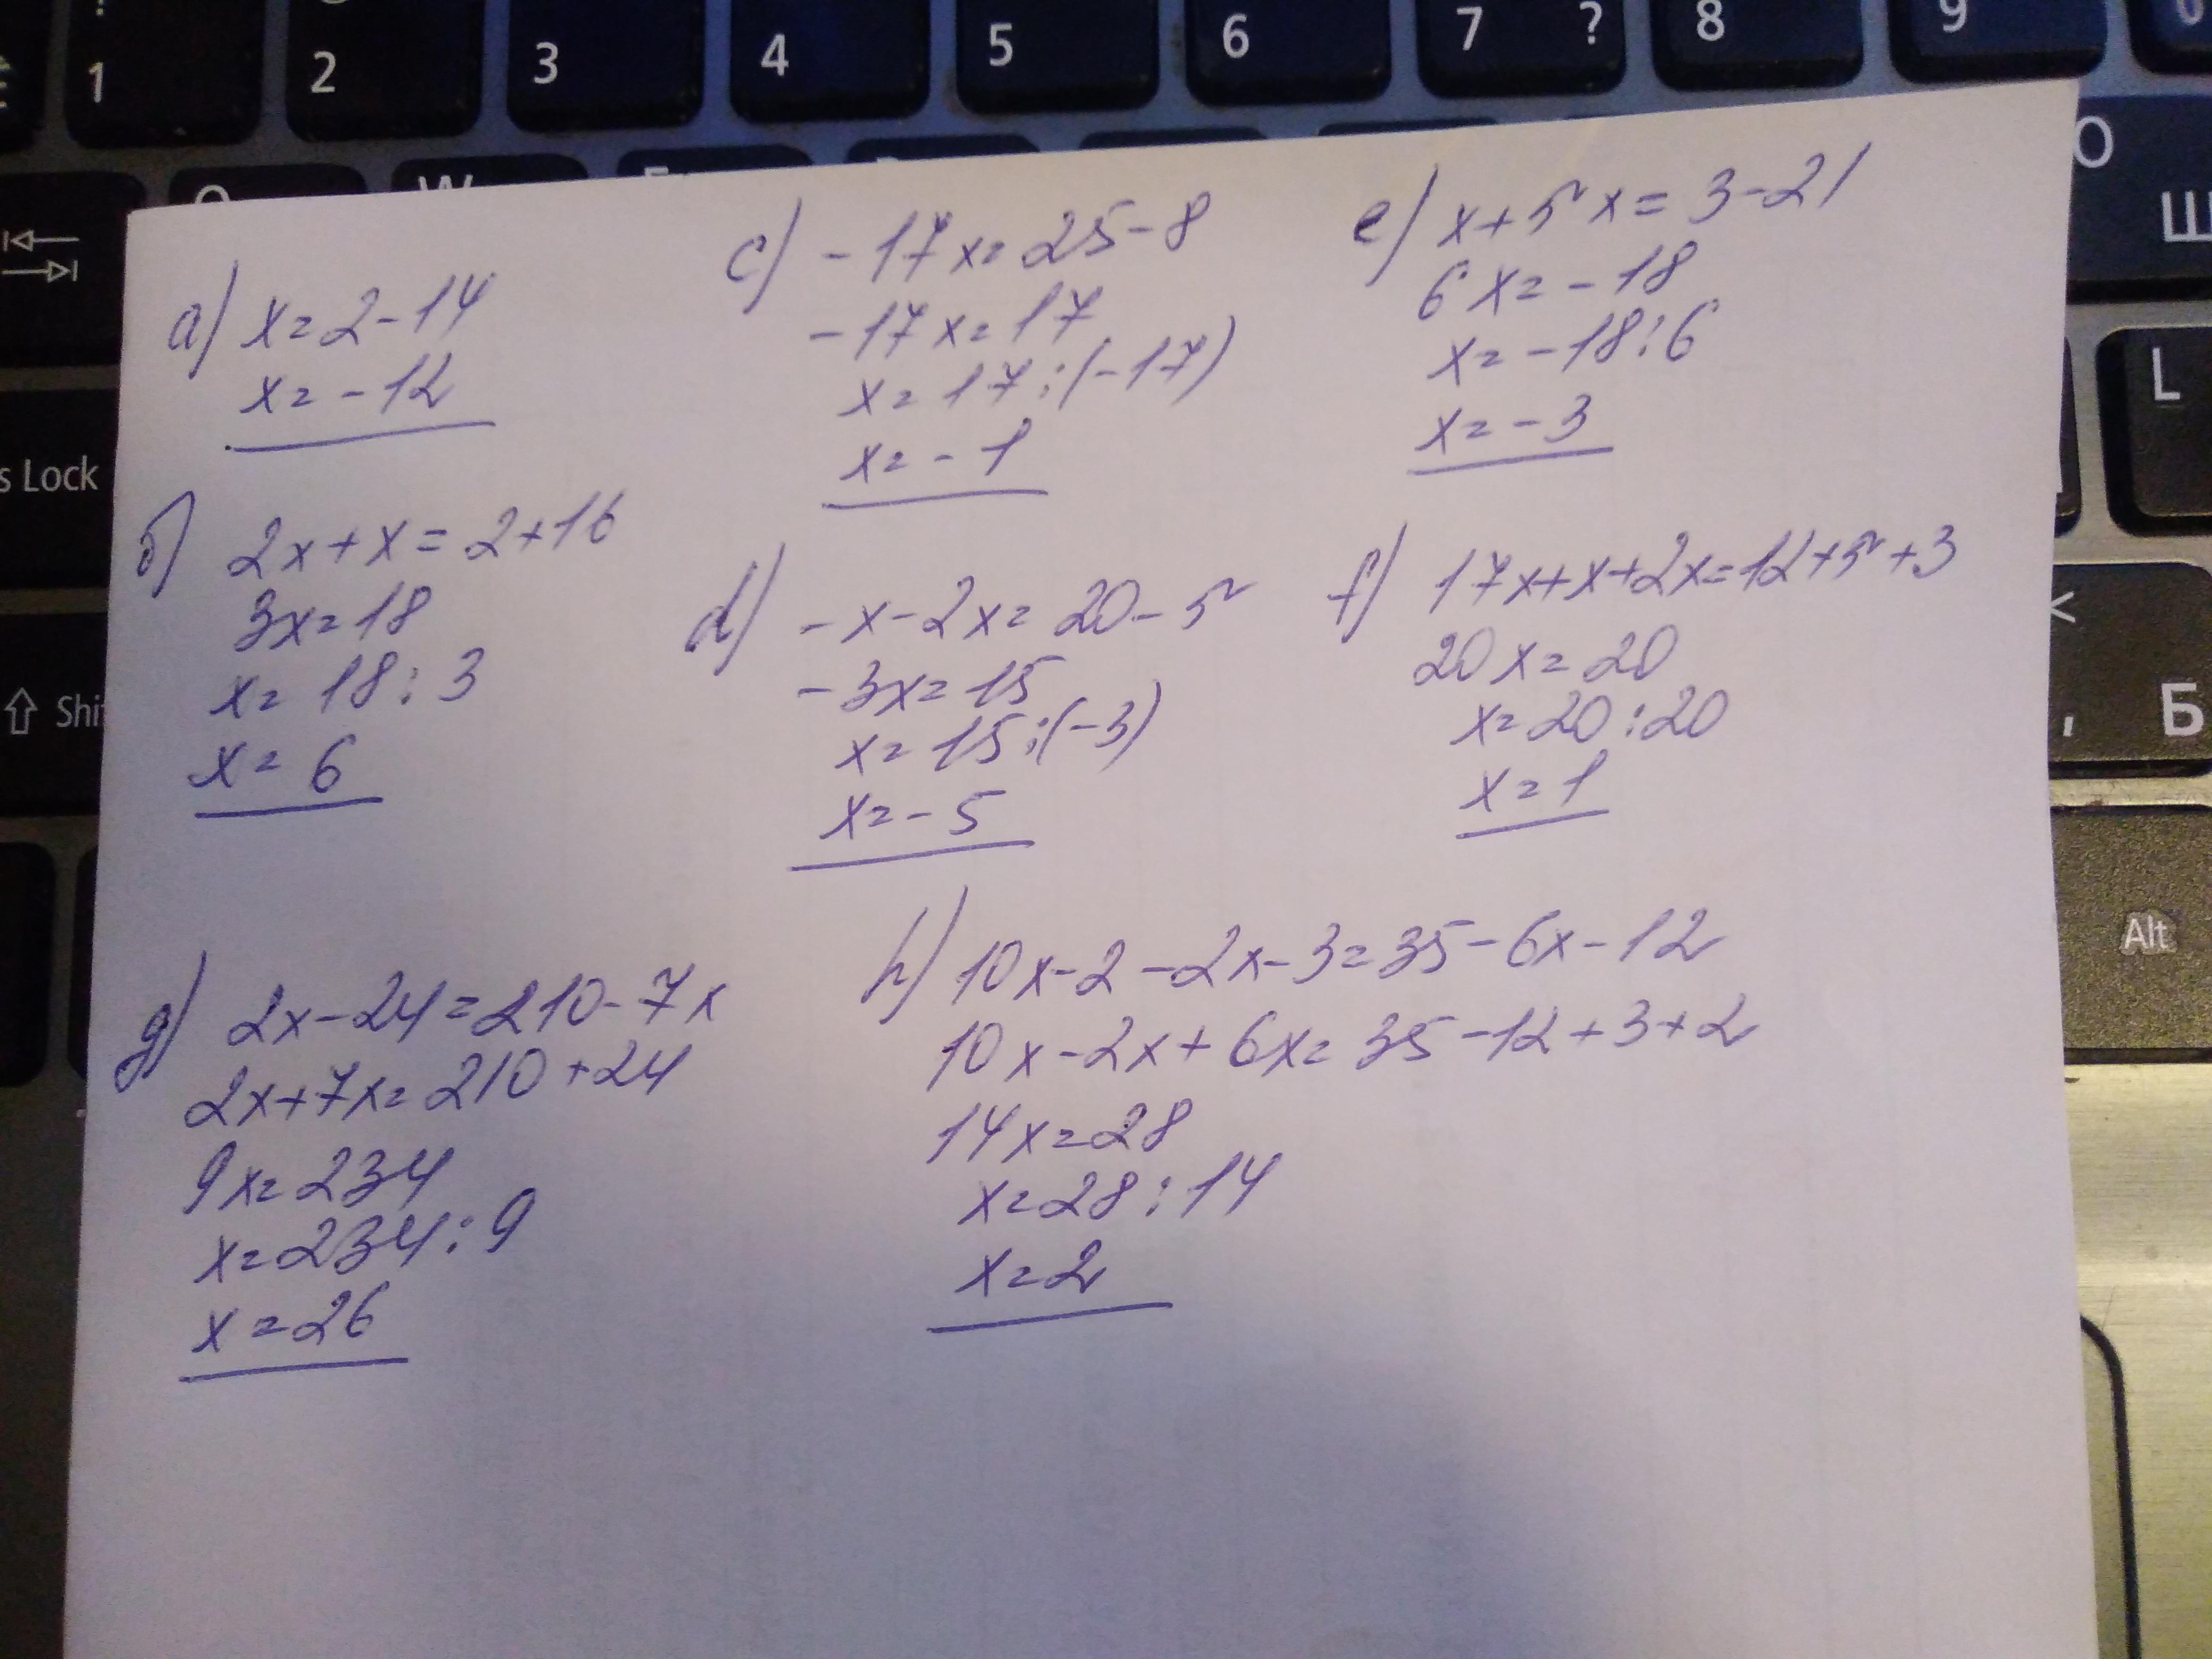 1 2 3 4 5 6 7 ? 8 9
O
Ш
s Lock
L
Shi
<
, Б
Alt
a) x=2-14
x=-12
б) 2x+x=2+16
3x=18
x=18:3
x=6
c) -17x=25-8
-17x=17
x=17:(-17)
x=-1
d) -x-2x=20-5
-3x=15
x=15:(-3)
x=-5
e) x+5x=3-21
6x=-18
x=-18:6
x=-3
f) 17x+x+2x=12+5+3
20x=20
x=20:20
x=1
g) 2x-24=210-7x
2x+7x=210+24
9x=234
x=234:9
x=26
h) 10x-2-2x-3=35-6x-12
10x-2x+6x=35-12+3+2
14x=28
x=28:14
x=2